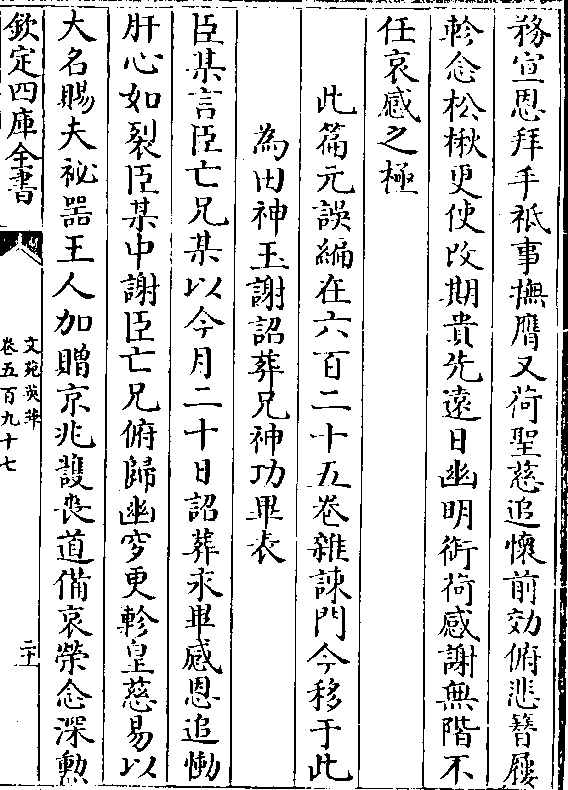 務宣恩拜手祗事撫膺又荷聖慈追懷前効俯悲簪履
軫念松楸更使改期貴先遠日幽明銜荷感謝無階不
任哀感之極
此篇元誤編在六百二十五卷雜諫門今移于此
為田神玉謝詔葬兄神功畢表
臣某言臣亡兄某以今月二十日詔葬永畢感恩追慟
肝心如裂臣某中謝臣亡兄俯歸幽穸更軫皇慈易以
大名賜夫祕器王人加贈京兆護喪道備哀榮念深勲
欽定四庫全書
文苑英華
卷五百九十七
二十